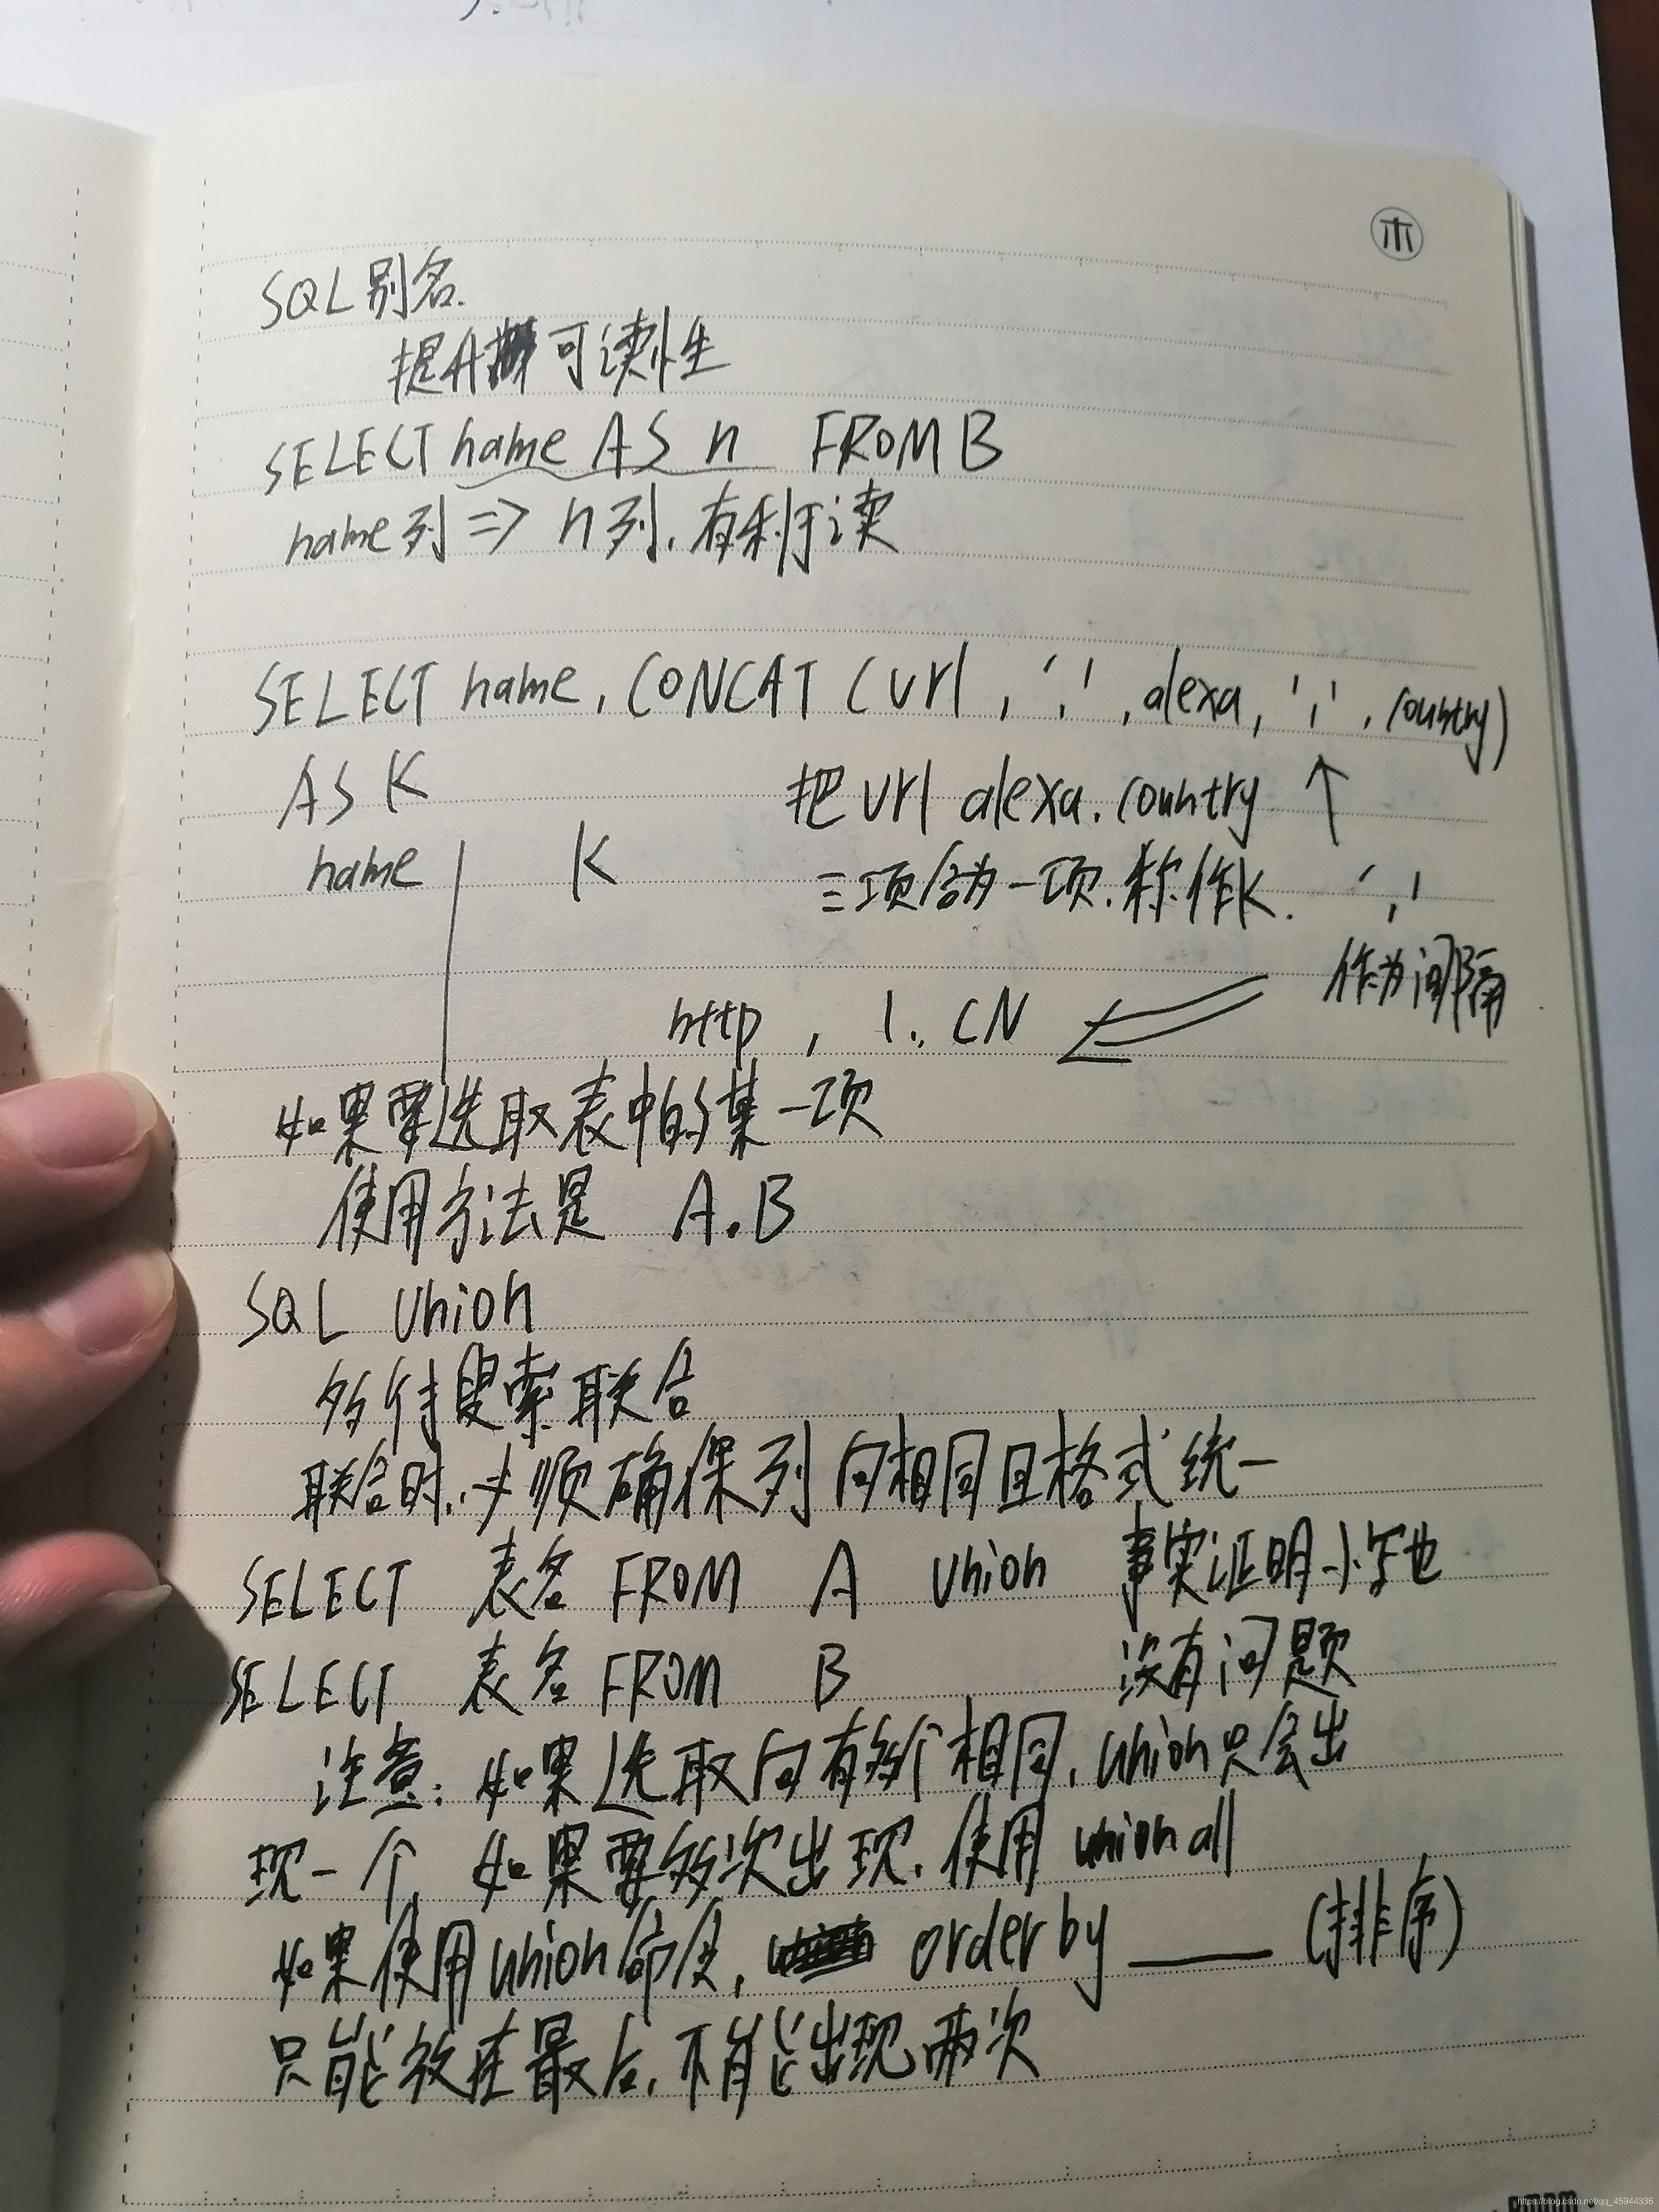 SQL 别名.
提升可读性
SELECT name AS n FROM B
name列 => n列,有利于读
SELECT name, CONCAT (url, ',', alexa, ',', country)
AS K
把 url alexa. country
↑
name | K
三项合为一项.称作K.
','
作为间隔
http , 1., CN
如果要选取表中的某一项
使用方法是 A.B
SQL union
多行搜索联合
联合时.必须确保列间相同且格式统一
SELECT 表名 FROM A union 事实证明小写也
SELECT 表名 FROM B 没有问题
注意: 如果选取间有多个相同, union只会出
现一个,如果要多次出现,使用 union all
如果使用union命令, order by ____ (排序)
只能放在最后,不能出现两次
https://blog.csdn.net/qq_45944336